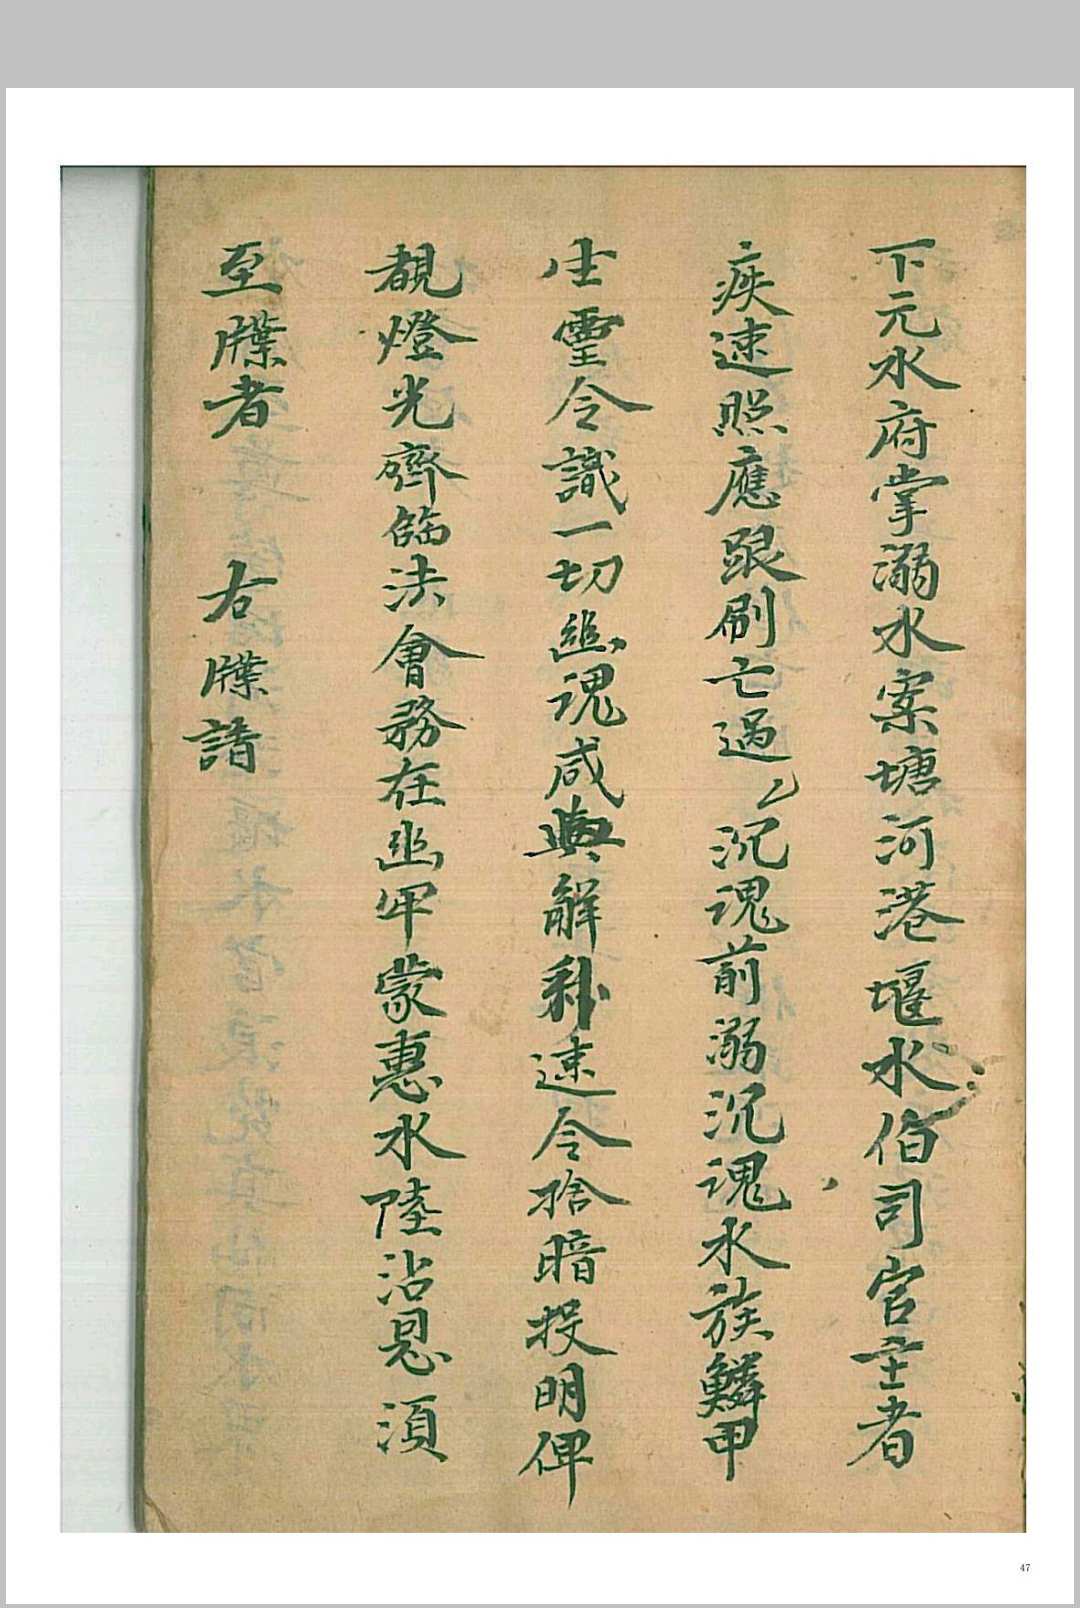 下元水府掌溺水案塘河港堰水伯司官主者
疾速照應跟刷亡過 沉魂前溺沉魂水族鱗甲
生靈令識一切幽魂咸與解釋速令捨暗投明俾
覩燈光齊臨法會務在幽牢蒙惠水陸沾恩 須
至牒者 右牒請
47